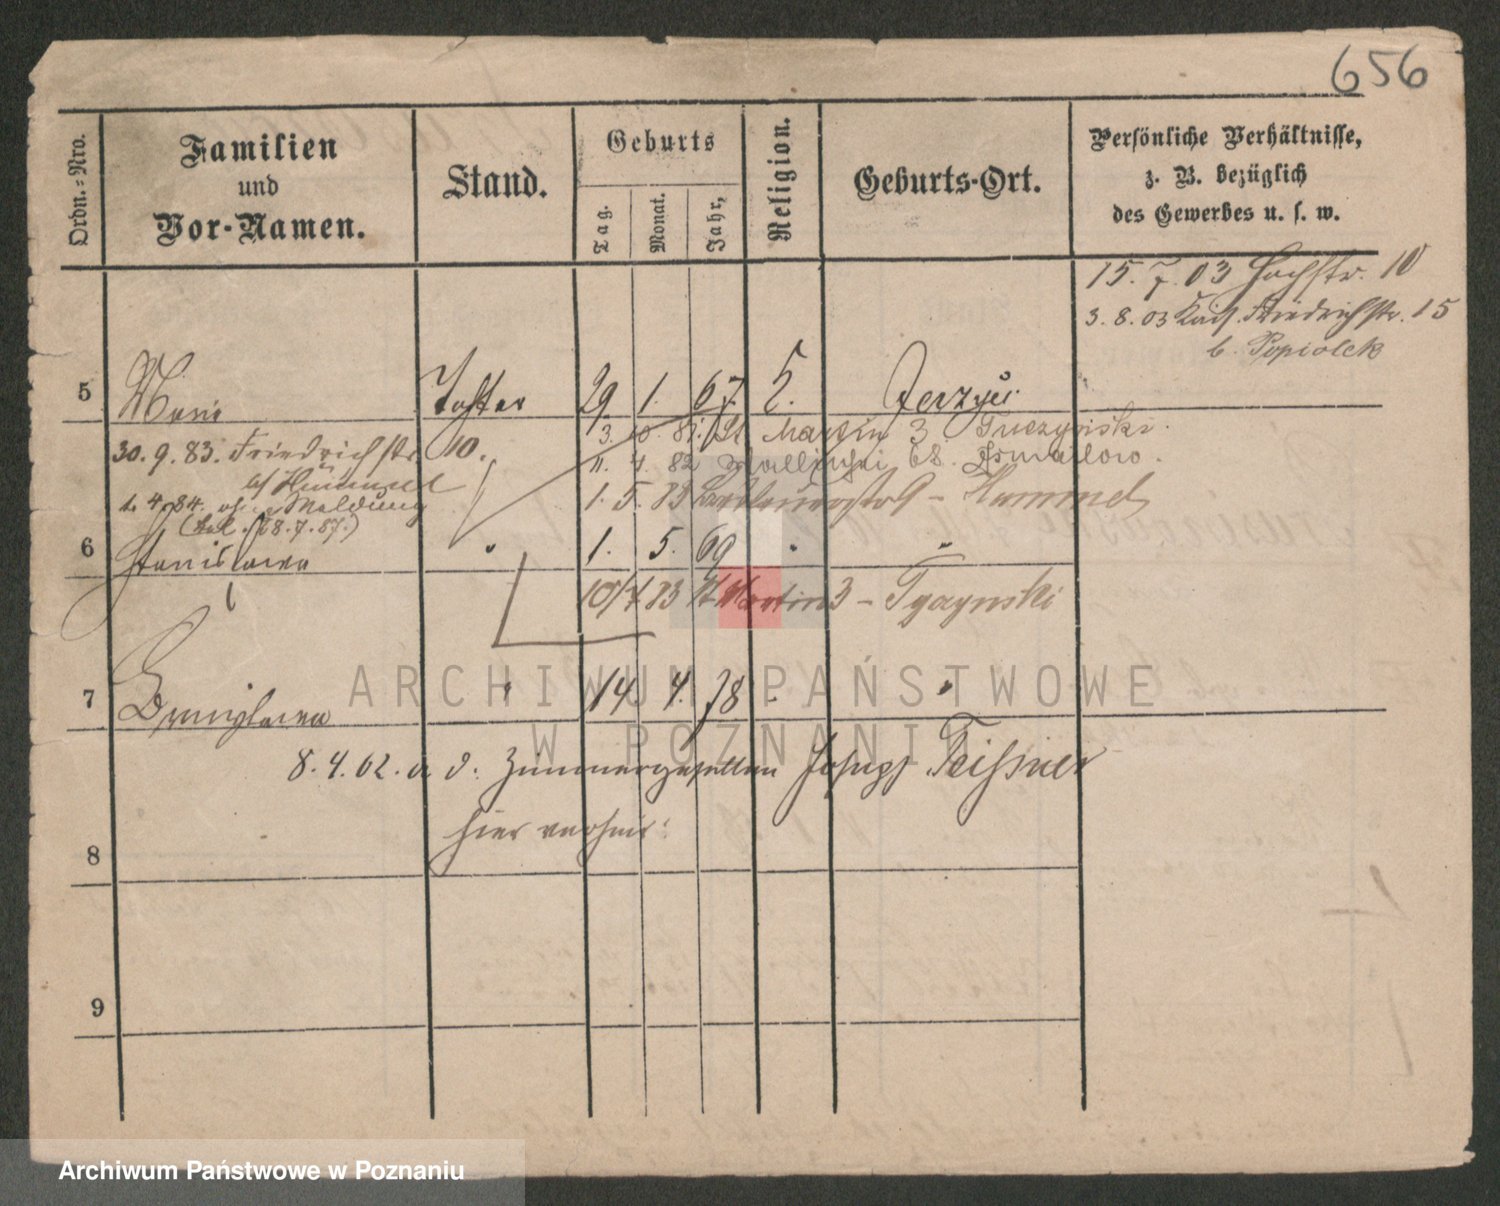 656
Ordn.-Nro.
Familien
und
Vor-Namen.
Stand.
Geburts
Tag.
Monat.
Jahr,
Religion.
Geburts-Ort.
Persönliche Verhältnisse,
z. B. bezüglich
des Gewerbes u. s. w.
15. 7. 03 Hochstr. 10
3. 8. 03 Kais. Friedrichstr. 15
b. Popiolek
5 Marie Tochter 29 1. 67.
3. 10. 81. St Martin 3.
30. 9. 83. Friedrichstr 10.
11. 4. 82 68.
bei Hummel
1. 5. 83 9 - Hummel
1. 4. 84. Meldung
28. 7. 87.
6 Stanislawa " 1. 5. 69 " "
10/7 83 St Martin 3 -
7 " 14 4. 78 " "
8. 4. 02. a. d. Zimmergesellen Joseph
hier verheir.
8
9
ARCHIWUM PAŃSTWOWE
W POZNANIU
Archiwum Państwowe w Poznaniu